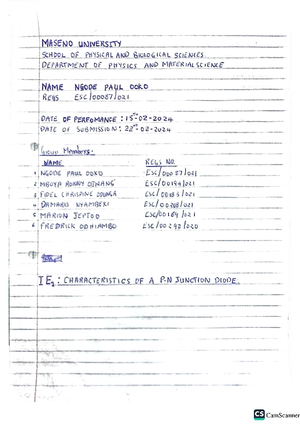 MASENO UNIVERSITY
SCHOOL OF PHYSICAL AND BIOLOGICAL SCIENCES
DEPARTMENT OF PHYSICS AND MATERIAL SCIENCE
NAME NGODE PAUL OOKO
REGS ESC/00057/021
DATE OF PERFOMANCE: 15TH-02-2024
DATE OF SUBMISSION: 22ND-02-2024
Group Members:
NAME REGS NO.
1 NGODE PAUL OOKO ESC/00057/021
2 MBUYA RONNY ESC/00194/021
3 FIDEL ESC/021
4 DAMARIS NYAMBEKI ESC/021
5 MARION JEPTOO ESC/00184/021
6 FREDRICK ODHIAMBO ESC/00242/020
IE1: CHARACTERISTICS OF A P-N JUNCTION DIODE.
CS CamScanner